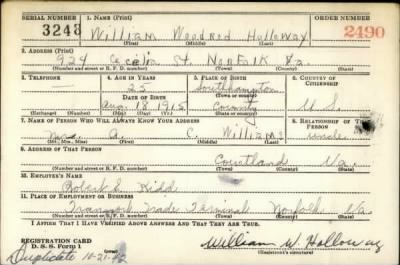 SERIAL NUMBER 1. NAME (Print) ORDER NUMBER
3243 William Woodrod Holloway 2490
(First) (Middle) (Last)
2. ADDRESS (Print)
924 Cecelia St. Norfolk Va.
(Number and street or R. F. D. number) (Town) (County) (State)
3. TELEPHONE 4. AGE IN YEARS 5. PLACE OF BIRTH 6. COUNTRY OF CITIZENSHIP
— 25 Southampton
DATE OF BIRTH (Town or county)
Aug. 18 1915 County U. S.
(Exchange) (Number) (Mo.) (Day) (Yr.) (State or country)
7. NAME OF PERSON WHO WILL ALWAYS KNOW YOUR ADDRESS 8. RELATIONSHIP OF THAT PERSON
A. C. Williams uncle
(Mr., Mrs., Miss) (First) (Middle) (Last)
9. ADDRESS OF THAT PERSON
Courtland Va.
(Number and street or R. F. D. number) (Town) (County) (State)
10. EMPLOYER'S NAME
Robert E. Kidd
11. PLACE OF EMPLOYMENT OR BUSINESS
Transport Trade Terminal Norfolk Va.
(Number and street or R. F. D. number) (Town) (County) (State)
I AFFIRM THAT I HAVE VERIFIED ABOVE ANSWERS AND THAT THEY ARE TRUE.
REGISTRATION CARD
D. S. S. Form 1
William W Holloway
Duplicate 10-21-42
(Registrant's signature)